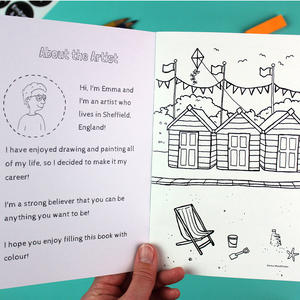 About the Artist
Hi, I'm Emma and
I'm an artist who
lives in Sheffield,
England!
I have enjoyed drawing and painting all
of my life, so I decided to make it my
career!
I'm a strong believer that you can be
anything you want to be!
I hope you enjoy filling this book with
colour!